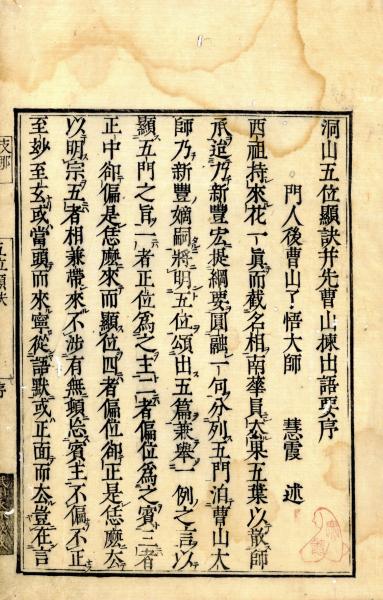 洞山五位顯訣并先曹山揀出語要序
門人後曹山了悟大師　慧霞　述
西祖持來花一眞而截名相南華員去果五葉以散師
承迨乃新豐宏提綱要圓融一句分列五門洎曹山大
師乃新豐嫡嗣將明五位頌出五篇兼擧一例之言以
顯五門之旨一者正位爲之主二者偏位爲之賓三者
正中卻偏是恁麽來而顯位四者偏位卻正是恁麽去
以明宗五者相兼帶來不涉有無頓忘賓主不偏不正
至玅至玄或當頭而來寧從語默或正面而去豈在言
支那
五位顯訣
序